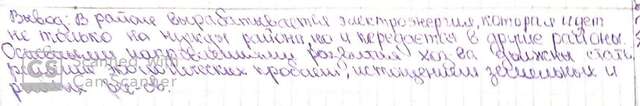 Вывод: В районе вырабатывается электроэнергия, которая идет
не только на нужды района, но и передается в другие районы.
Основными направлениями развития хоз-ва должны стать
решение экологических проблем, истощением земельных и
CS Scanned with
CamScanner